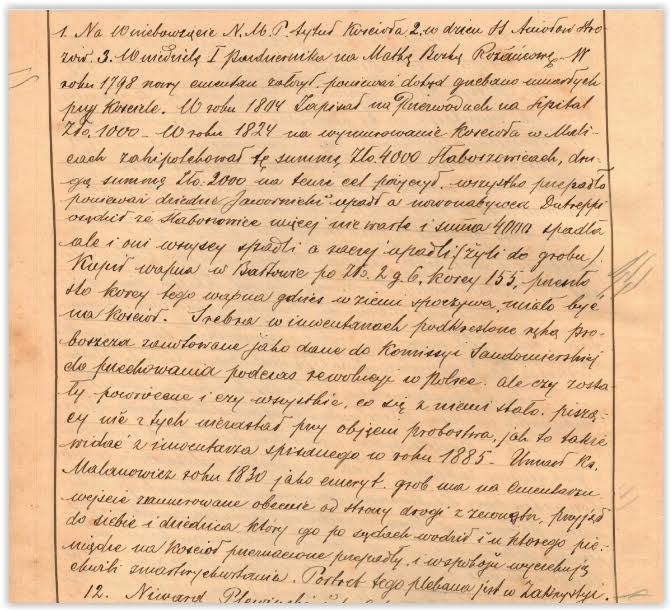 1. Na Wniebowzięcie N. M. P. tytuł Kościoła 2. w dzień SS Aniołów Stró-
żów. 3. W niedzielę I Października na Matkę Boską Różańcową. W
roku 1798 nowy cmentarz założył, ponieważ dotąd grzebano umarłych
przy Kościele. W roku 1804 Zapisał na Przewodach na Szpital
Złp. 1000 - W roku 1824 na wymurowanie Kościoła w Mali-
cach zahipotekował tę summę Złp. 4000 Słaboszowicach, dru-
gą summę Złp. 2000 na tenże cel pożyczył, wszystko przepadło
ponieważ dziedzic Jawornicki upadł a nowonabywca Dutreppi
osądził że Słaboszowice więcej nie warte i summa 4000 spadła
ale i oni wszyscy spadli a raczej upadli (żyli do grobu).
Kupił wapna w po Złp. 2 g. 6, korcy 155, przeszło
sto korcy tego wapna gdzieś w ziemi spoczywa, miało być
na Kościół. Srebra w inwentarzach podkreślone ręką pro-
boszcza zanotowane jako dane do Komissyi Sandomierskiej
do przechowania podczas rewolucji w Polsce. ale czy zosta-
ły powrócone i czy wszystkie, co się z niemi stało. piszą-
cy nic z tych nie zastał przy objęciu probostwa, jak to także
widać z inwentarza spisanego w roku 1885. Umarł Ks.
Malanowicz roku 1830 jako emeryt. grób ma na Cmentarzu
wejście zamurowane obecnie od strony drogi z zewnątrz, przyjął
do siebie i dziedzica który go po sądach wodził i u którego pie-
niądze na Kościół przeznaczone przepadły, i w spokoju wyczekują
chwili zmartwychwstania. Portret tego plebana jest w Zakrystyi.
12. Niward